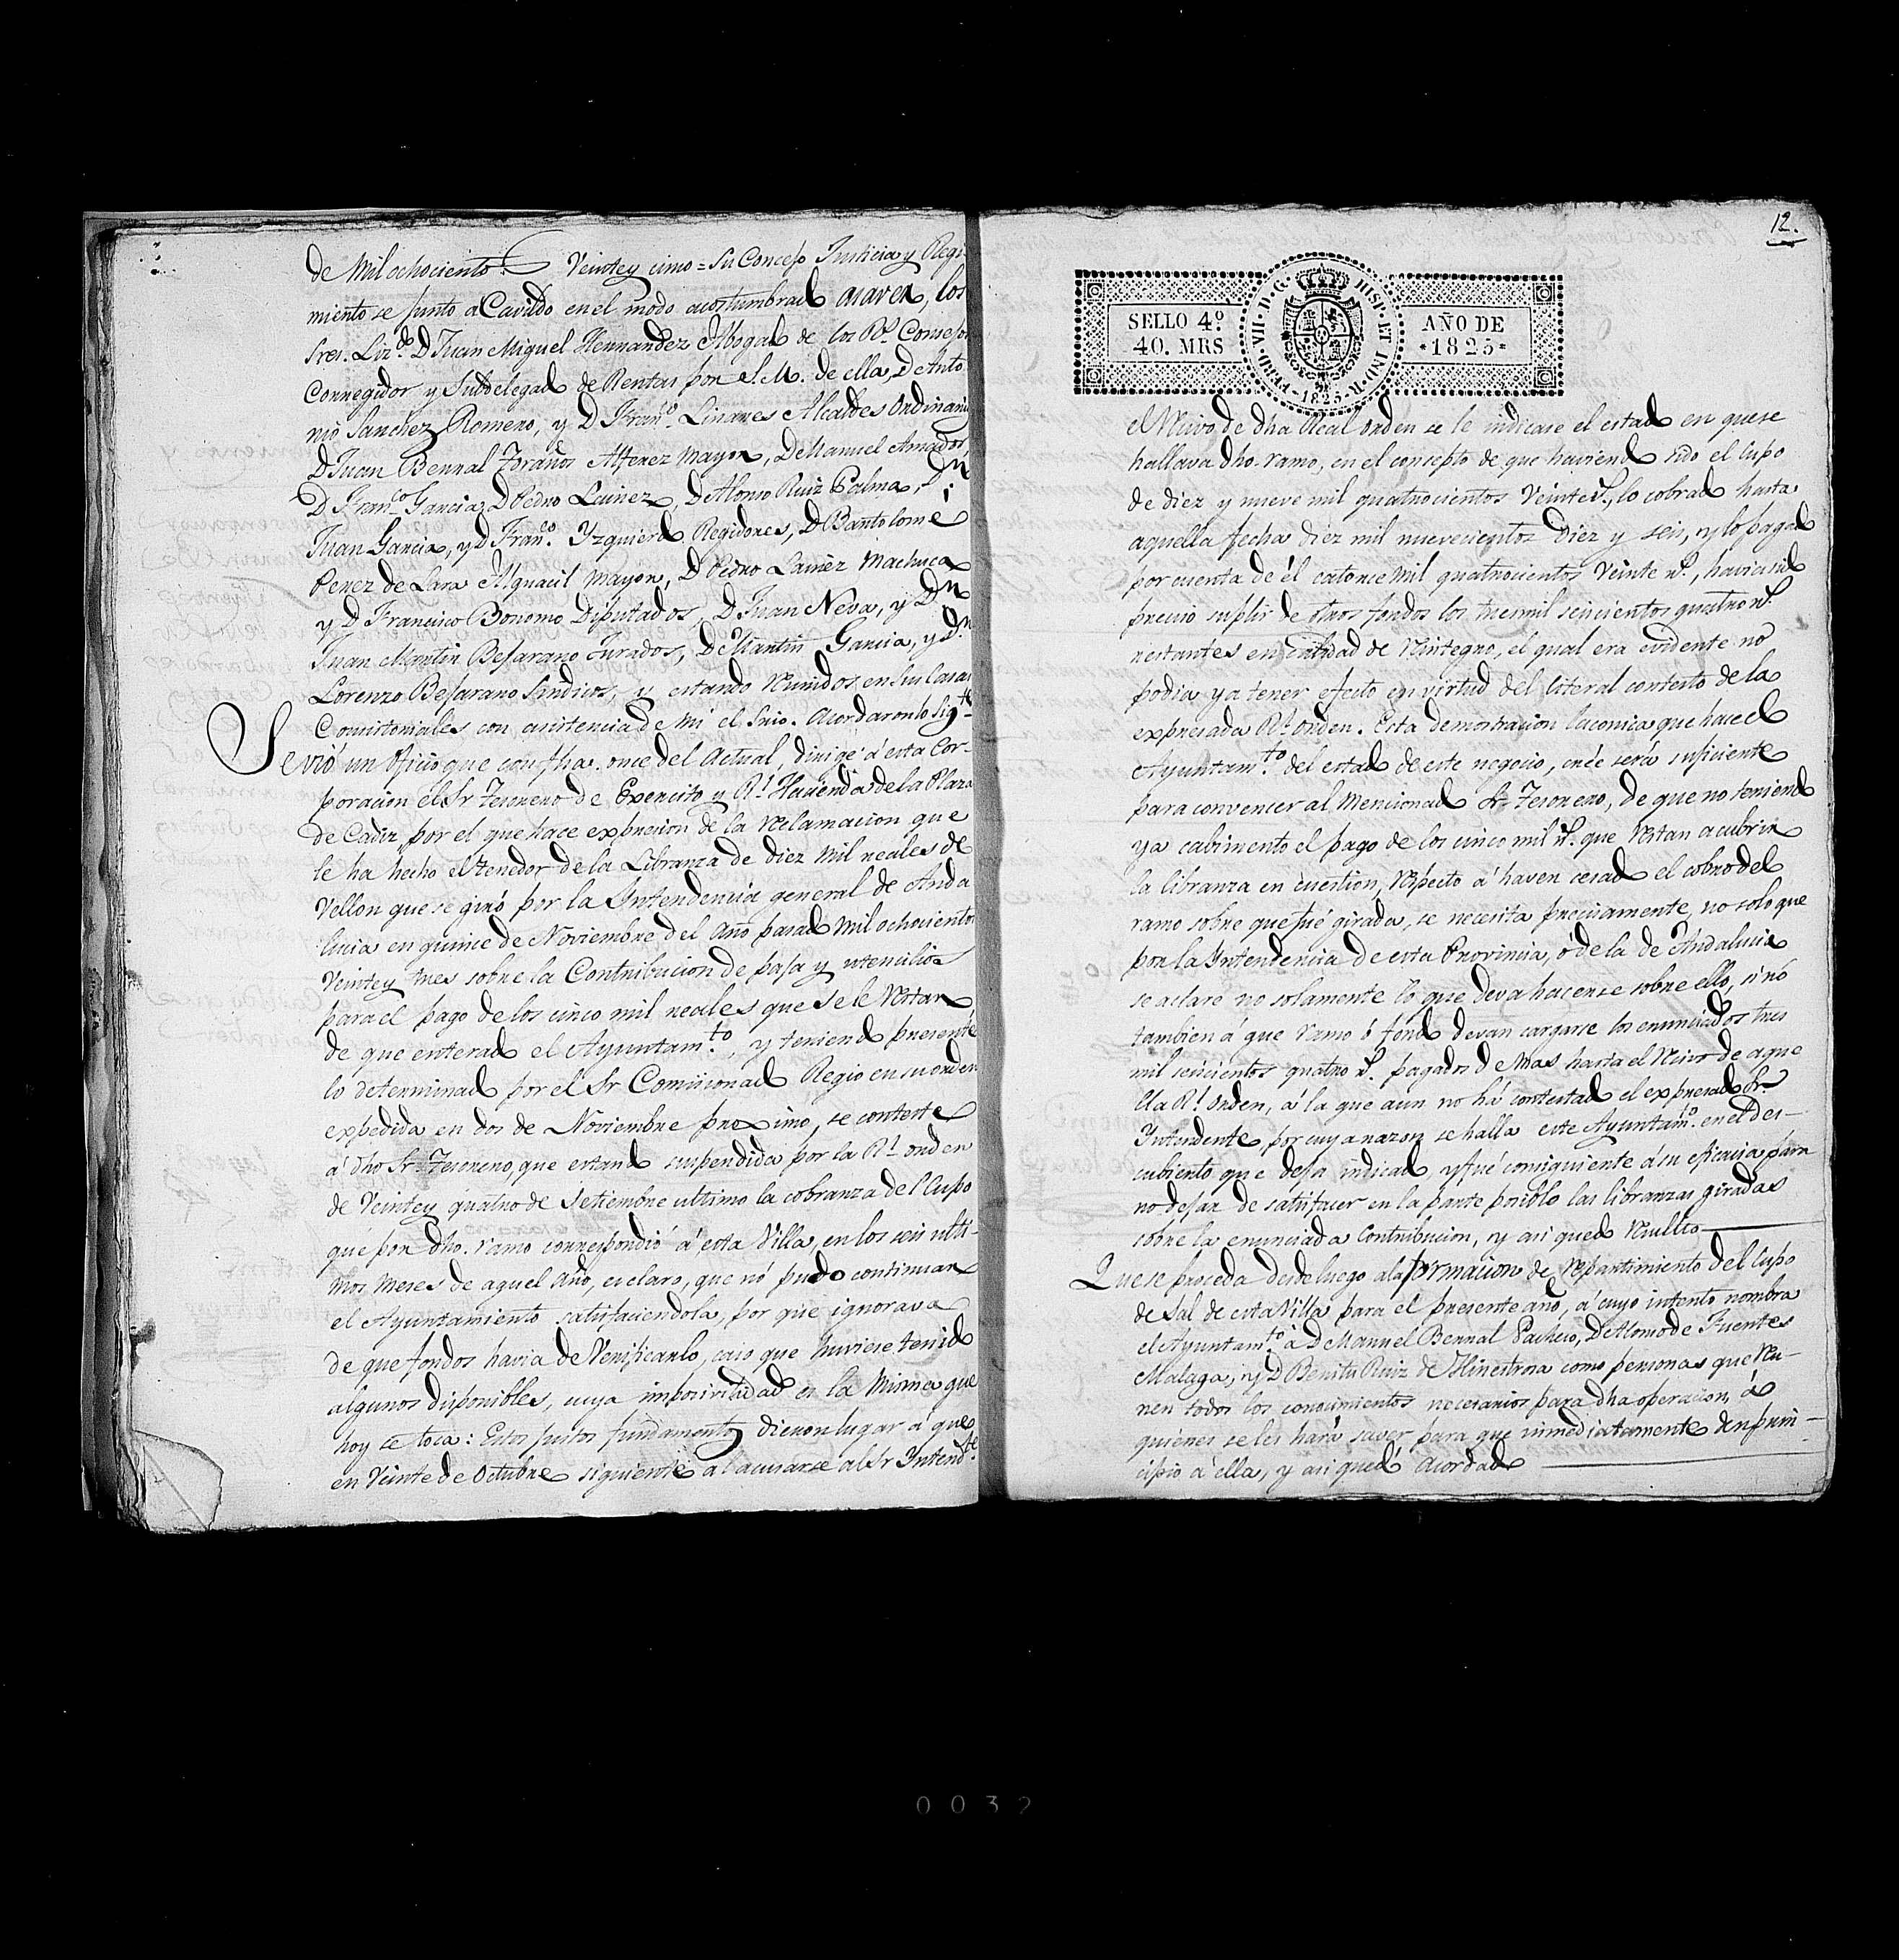 de Mil ochociento.s Veinte y cinco = Su Concejo Justicia y Regi-
miento se junto a Cavildo en el modo acostumbrado asaver, los
Sres. Liz.do D Juan Miguel Hernandez Abogado de los R.s Consejos
Corregidor y Subdelegado de Rentas por S. M. de ella, D Anto-
nio Sanchez Romero, y D Fran.co Linares Alcaldes ordinarios
D Juan Bernal Foraños Alferez mayor, D Manuel Amador,
D Fran.co Garcia, D Pedro Lainez, D Alonso Ruiz Palma, D.n
Juan Garcia, y D Fran.co Yzquierdo Regidores, D Bartolome
Perez de Lara Alguacil mayor, D Pedro Lainez Machuca
y D Francisco Bonomo Diputados, D Juan Neva, y D.n
Juan Martin Bejarano Jurados, D Martin Garcia, y D.n
Lorenzo Bejarano Sindicos, y estando reunidos en sus Casas
Consistoriales con asistencia de mi el Srio. Acordaron lo sig.te
Se vió un oficio que con fha. once del Actual, dirige á esta Cor-
poracion el Sr Tesorero de Exercito y R.l Hacienda de la Plaza
de Cadiz, por el que hace expresion de la reclamacion que
le ha hecho el tenedor de la Libranza de diez mil reales de
Vellon que se giró por la Yntendencia general de Anda
lucia en quince de Noviembre del Año pasado mil ochocientos
Veinte y tres sobre la Contribucion de paja y utencilios
para el pago de los cinco mil reales que se le restan
de que enterado el Ayuntam.to, y teniendo presente
lo determinado por el Sr Comicionado Regio en su orden
expedida en dos de Noviembre proximo, se conteste
á dho Sr Tesorero, que estando suspendida por la R.l orden
de Veinte y quatro de Setiembre ultimo la cobranza del Cupo
que por dho. ramo correspondió á esta Villa en los seis ulti-
mos meses de aquel Año, es claro, que nó pudo continuar
el Ayuntamiento satisfaciendola, por que ignorava
de que fondos havia de Verificarlo, caso que huviese tenido
algunos disponibles, cuya imposivilidad es la misma que
hoy se toca: Estos justos fundamentos dieron lugar á que
en Veinte de Octubre siguiente al acusarse al Sr Yntend.te
12.
SELLO 4º
40. MRS
FERD. VII. D. G. HISP. ET IND. R.
1825
AÑO DE
1825
el Recivo de dha Real orden se le indicase el estado en que se
hallava dho. ramo, en el concepto de que haviendo sido el Cupo
de diez y nueve mil quatrocientos Veinte r.s, lo cobrado hasta
aquella fecha diez mil nuevecientos diez y seis, y lo pagado
por cuenta de él catorce mil quatrocientos Veinte r.s, havia sido
preciso suplir de otros fondos los tres mil seiscientos quatro r.s
restantes en calidad de reintegro, el qual era evidente no
podia ya tener efecto en virtud del literal contesto de la
expresada R.l orden. Esta demostracion laconica que hace el
Ayuntam.to del estado de este negocio, cree será suficiente
para convencer al mencionado Sr Tesorero, de que no teniendo
ya cabimento el pago de los cinco mil r.s que restan a cubrir
la libranza en cuestion, respecto á haver cesado el cobro del
ramo sobre que fué girada, se necesita precisamente, no solo que
por la Yntendencia de esta Provincia, ó de la de Andalucia
se aclare no solamente lo que deva hacerse sobre ello, sinó
tambien á que ramo ó fondo devan cargarse los enunciados tres
mil seiscientos quatro r.s pagados de mas hasta el recivo de aque
lla R.l orden, á la que aun no há contestado el expresado Sr
Yntendente por cuya razon se halla este Ayuntam.to en el des-
cubierto que deja indicado y fué consiguiente á su eficacia para
no dejar de satisfacer en la parte posible las libranzas giradas
sobre la enunciada Contribucion, y asi quedó resuelto
Que se proceda desde luego a la formacion de repartimiento del Cupo
de Sal de esta Villa para el presente año, á cuyo intento nombra
el Ayuntam.to á D Manuel Bernal Pacheco, D Alonso de Fuentes
Malaga, y D Benito Ruiz de Hinestrosa como personas que reu-
nen todos los conocimientos necesarios para dha operacion, á
quienes se les hará saver para que inmediatamente den prin-
cipio á ella, y asi quedó acordado
0032